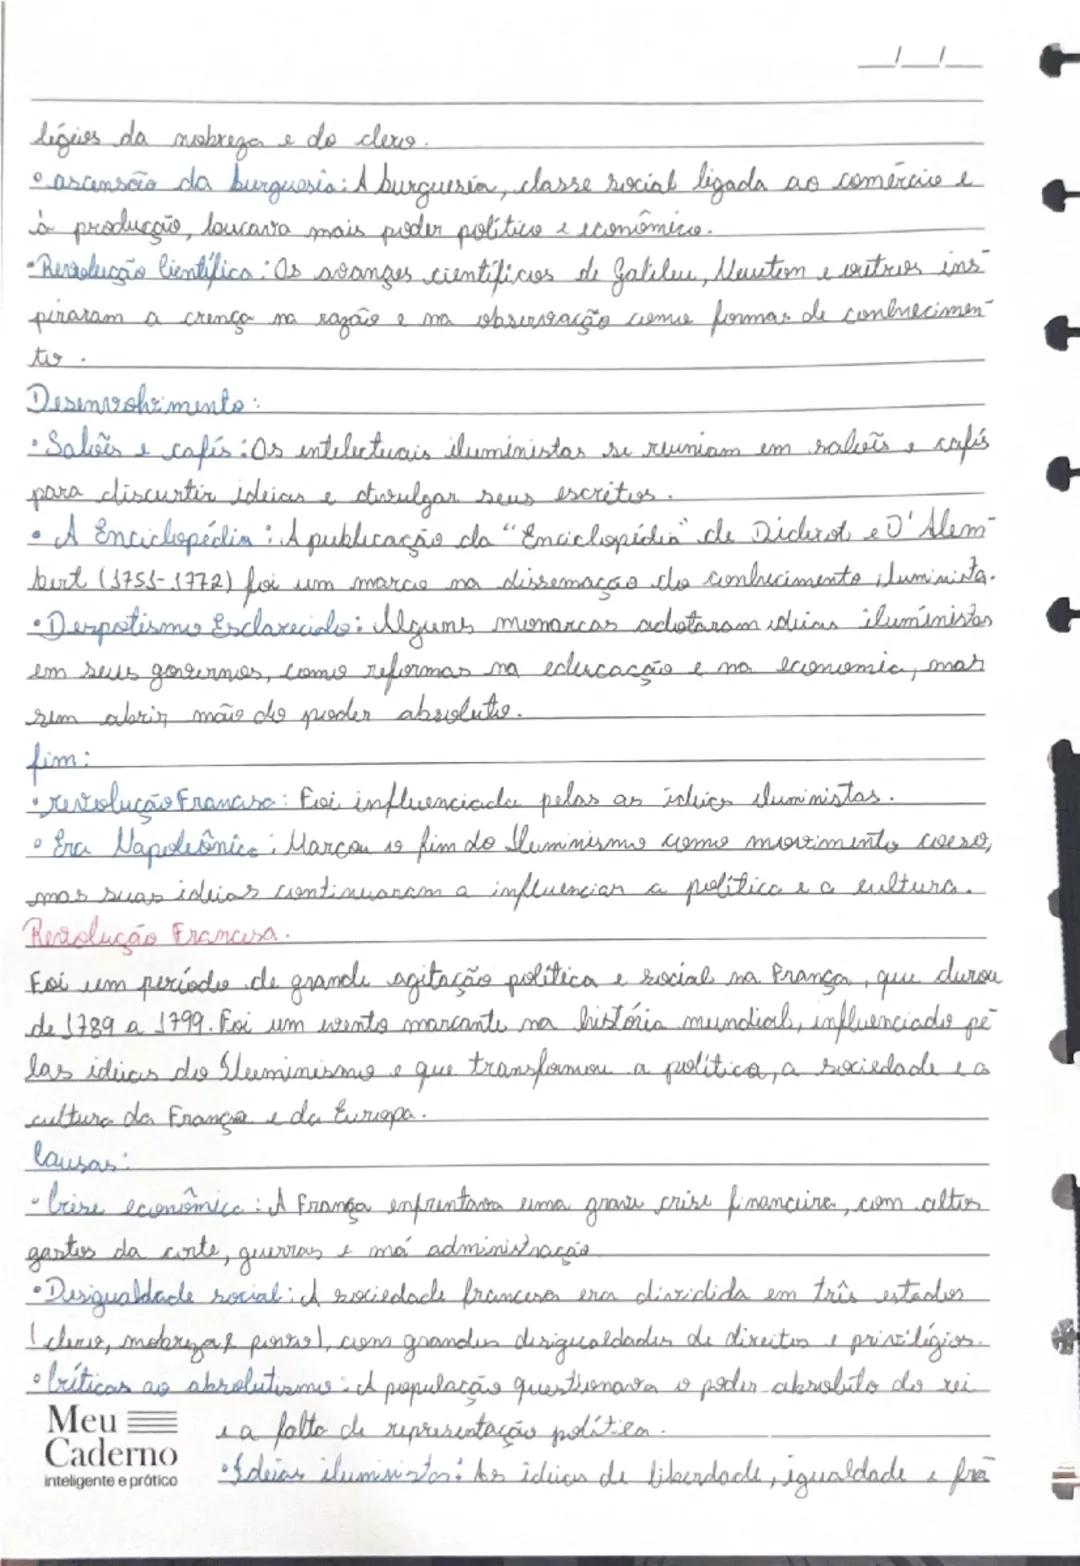 __/__/__
légios da nobreza e do clero.
• ascensão da burguesia: A burguesia, classe social ligada ao comércio e
à producção, loucava mais poder político e econômico.
• Revolução Científica: Os avanços científicos de Galileu, Newton e outros ins-
piraram a crença na razão e na observação como formas de conhecimen-
to.
Desenvolvimento:
• Salões e cafés: Os intelectuais iluministas se reuniam em salões e cafés
para discurtir ideias e divulgar seus escritos.
• A Enciclopédia: A publicação da "Enciclopédia" de Diderot e D'Alem-
bert (1751-1772) foi um marco na dissemação do conhecimento iluminista.
• Despotismo Esclarecido: Alguns monarcas adotaram ideias iluministas
em seus governos, como reformas na educacção e na economia, mas
sem abrir mão do poder absoluto.
fim:
• revolução Francesa: Foi influenciada pelas as ideias iluministas.
• Era Napoleônica: Marcou o fim do Iluminismo como movimento coeso,
mas suas ideias continuaram a influenciar a política e a cultura.
Revolução Francesa.
Foi um período de grande agitação política e social na França, que durou
de 1789 a 1799. Foi um evento marcante na história mundial, influenciado pe-
las ideias do Iluminismo e que transformou a política, a sociedade e a
cultura da França e da Europa.
Causas:
• Crise econômica: A França enfrentava uma grave crise financeira, com altos
gastos da corte, guerras e má administração
• Desigualdade social: A sociedade francesa era dividida em três estados
(clero, nobreza e povo), com grandes desigualdades de direitos e privilégios.
• Críticas ao absolutismo: A população questionava o poder absoluto do rei
e a falta de representação política.
• Ideias iluministas: As ideias de liberdade, igualdade e fra-
Meu
Caderno
inteligente e prático